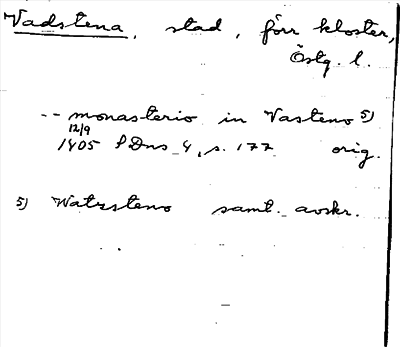 Vadstena, stad, förr kloster,
Östg. l.
-- monasterio in Vasteno 5)
12/9
1405 SDns 4, s. 177 orig.
5) Watzsteno samt. avskr.